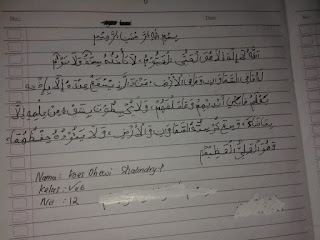 No.:
Date:
بسم الله الرحمن الرحيم
الله لا إله إلا هو الحي القيوم لا تأخذه سنة ولا نوم
له ما في السماوات وما في الأرض من ذا الذي يشفع عنده إلا بإذنه
يعلم ما بين أيديهم وما خلفهم ولا يحيطون بشيء من علمه إلا
بما شاء وسع كرسيه السماوات والأرض ولا يئوده حفظهما
وهو العلي العظيم
Nama :
Kelas :
No : 12